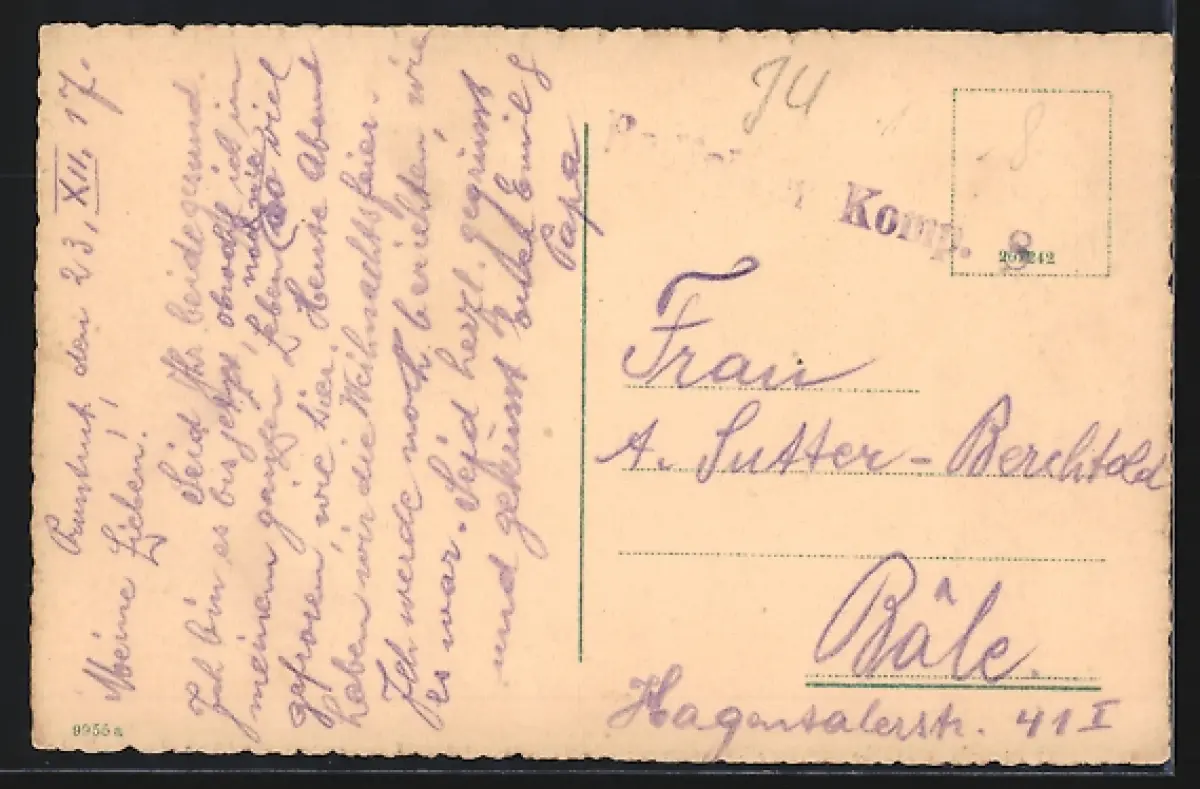 den 23, XII. 17.
Meine Lieben!
Seid Ihr beide gesund.
Ich bin es bis jetzt, obwohl ich in
meinem ganzen Leben noch nie so viel
gefroren wie hier. Heute Abend
haben wir die Weihnachtsfeier.
Ich werde noch berichten, wie
es war. Seid herzl. gegrüsst
und geküsst Emil &
Papa
9955a
JU
Komp. 8
Frau
A. Sutter-Berchtold
Bâle.
Hagentalerstr. 41 I